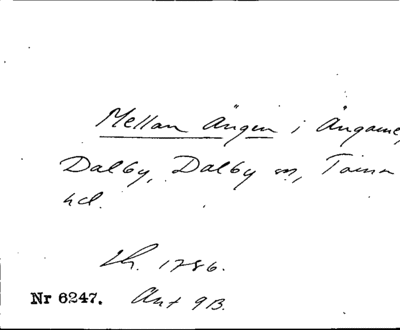 Mellan Ängen i Ängarne,
Dalby, Dalby sn, Torna
hd.
Sk. 1786.
Nr 6247. Akt 9B.